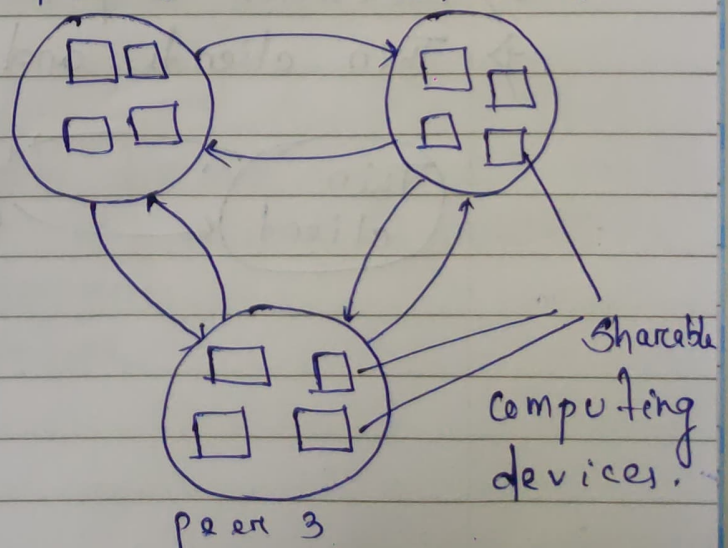 Sharable
computing
devices.
peer 3